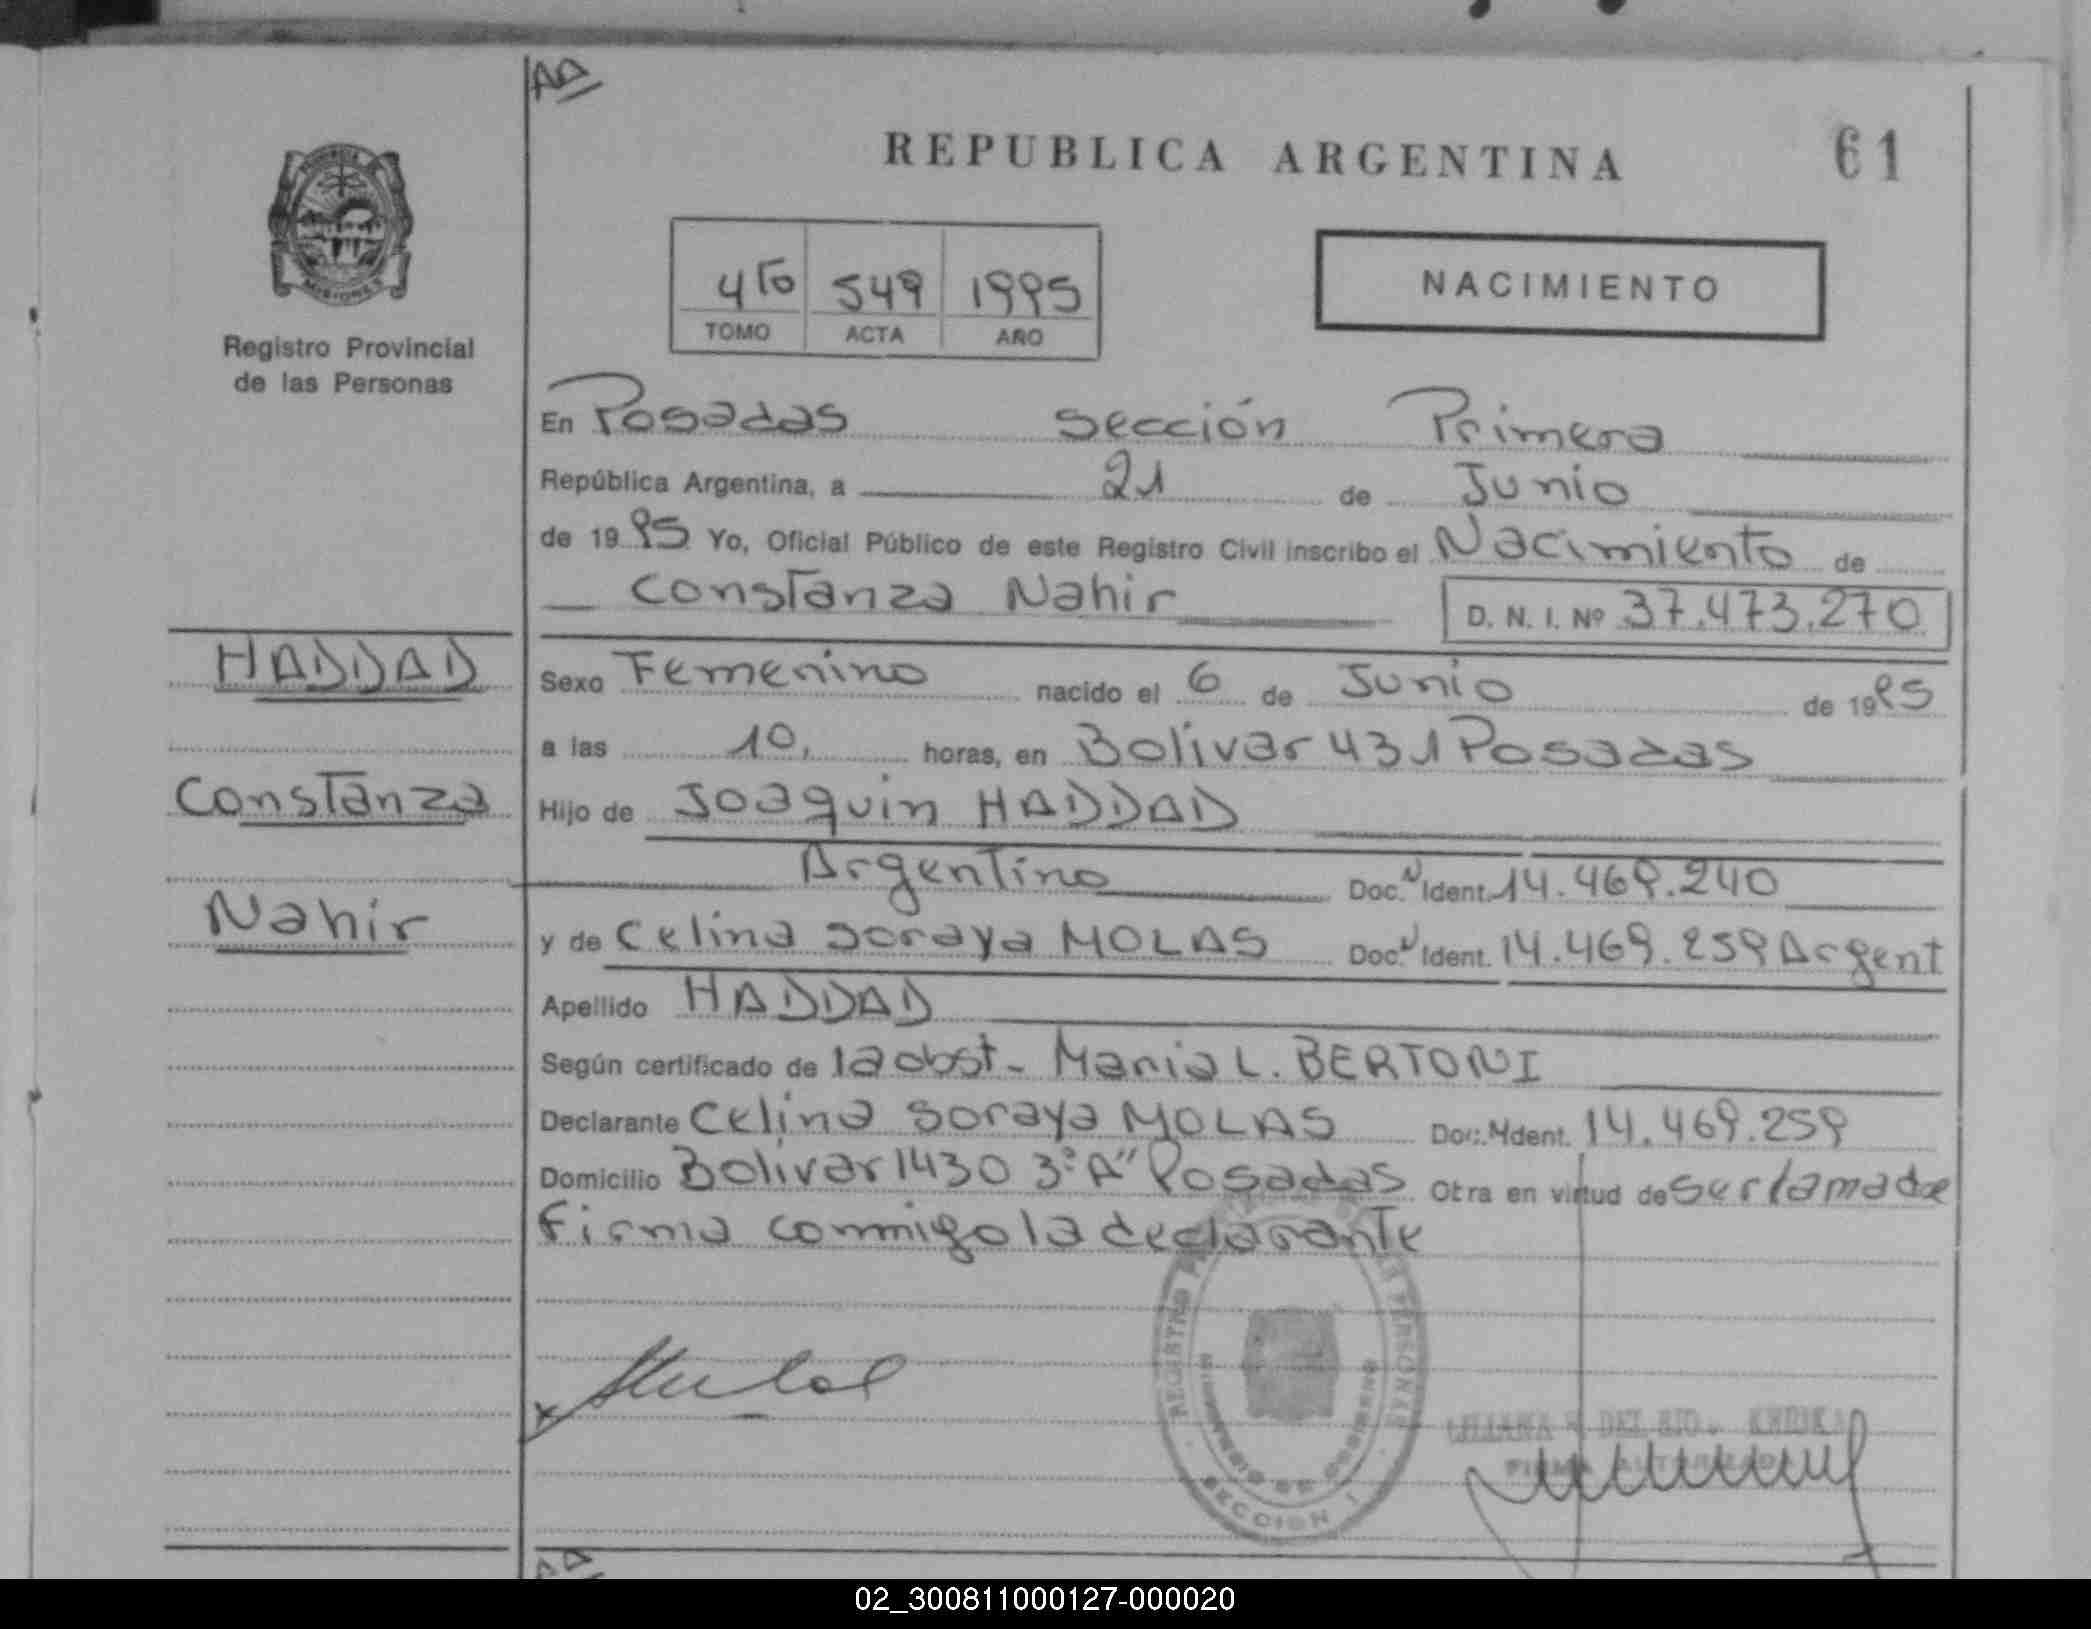 AD
REPUBLICA ARGENTINA
61
PROVINCIA
MISIONES
Registro Provincial
de las Personas
4to 549 1995
TOMO ACTA AÑO
NACIMIENTO
En Posadas sección Primera
República Argentina, a 21 de Junio
de 1995 Yo, Oficial Público de este Registro Civil inscribo el Nacimiento de
Constanza Nahir D. N. I. Nº 37.473.270
HADDAD
Constanza
Nahir
Sexo Femenino nacido el 6 de Junio de 1995
a las 10, horas, en Bolivar 431 Posadas
Hijo de Joaquin HADDAD
Argentino Doc. N Ident. 14.469.240
y de Celina Soraya MOLAS Doc. N Ident. 14.469.259 Argent
Apellido HADDAD
Según certificado de la obst- Maria L. BERTONI
Declarante Celina Soraya MOLAS Doc. N Ident. 14.469.259
Domicilio Bolivar 1430 3º A" Posadas Otra en virtud de ser la madre
Firma conmigo la declarante
REGISTRO PERSONAS
MINISTERIO DE GOBIERNO
SECCION I
DEL RIO
FIRMA AUTORIZADA
AD
02_300811000127-000020